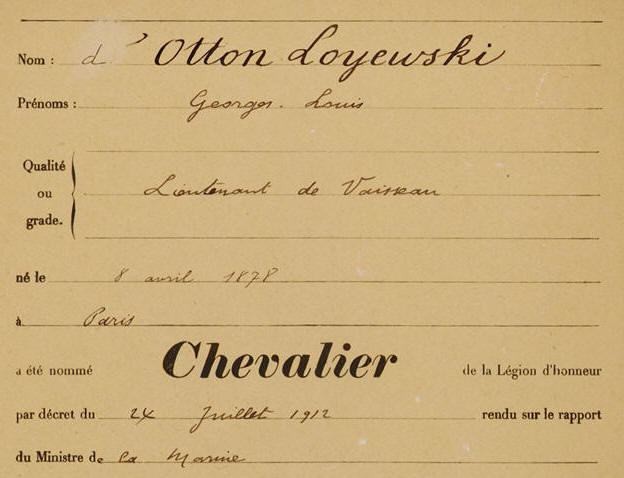 Nom : d' Otton Loyewski
Prénoms : Georges. Louis
Qualité
ou
grade.
Lieutenant de Vaisseau
né le 8 avril 1878
à Paris
a été nommé Chevalier de la Légion d'honneur
par décret du Juillet 1912 rendu sur le rapport
du Ministre de la Marine